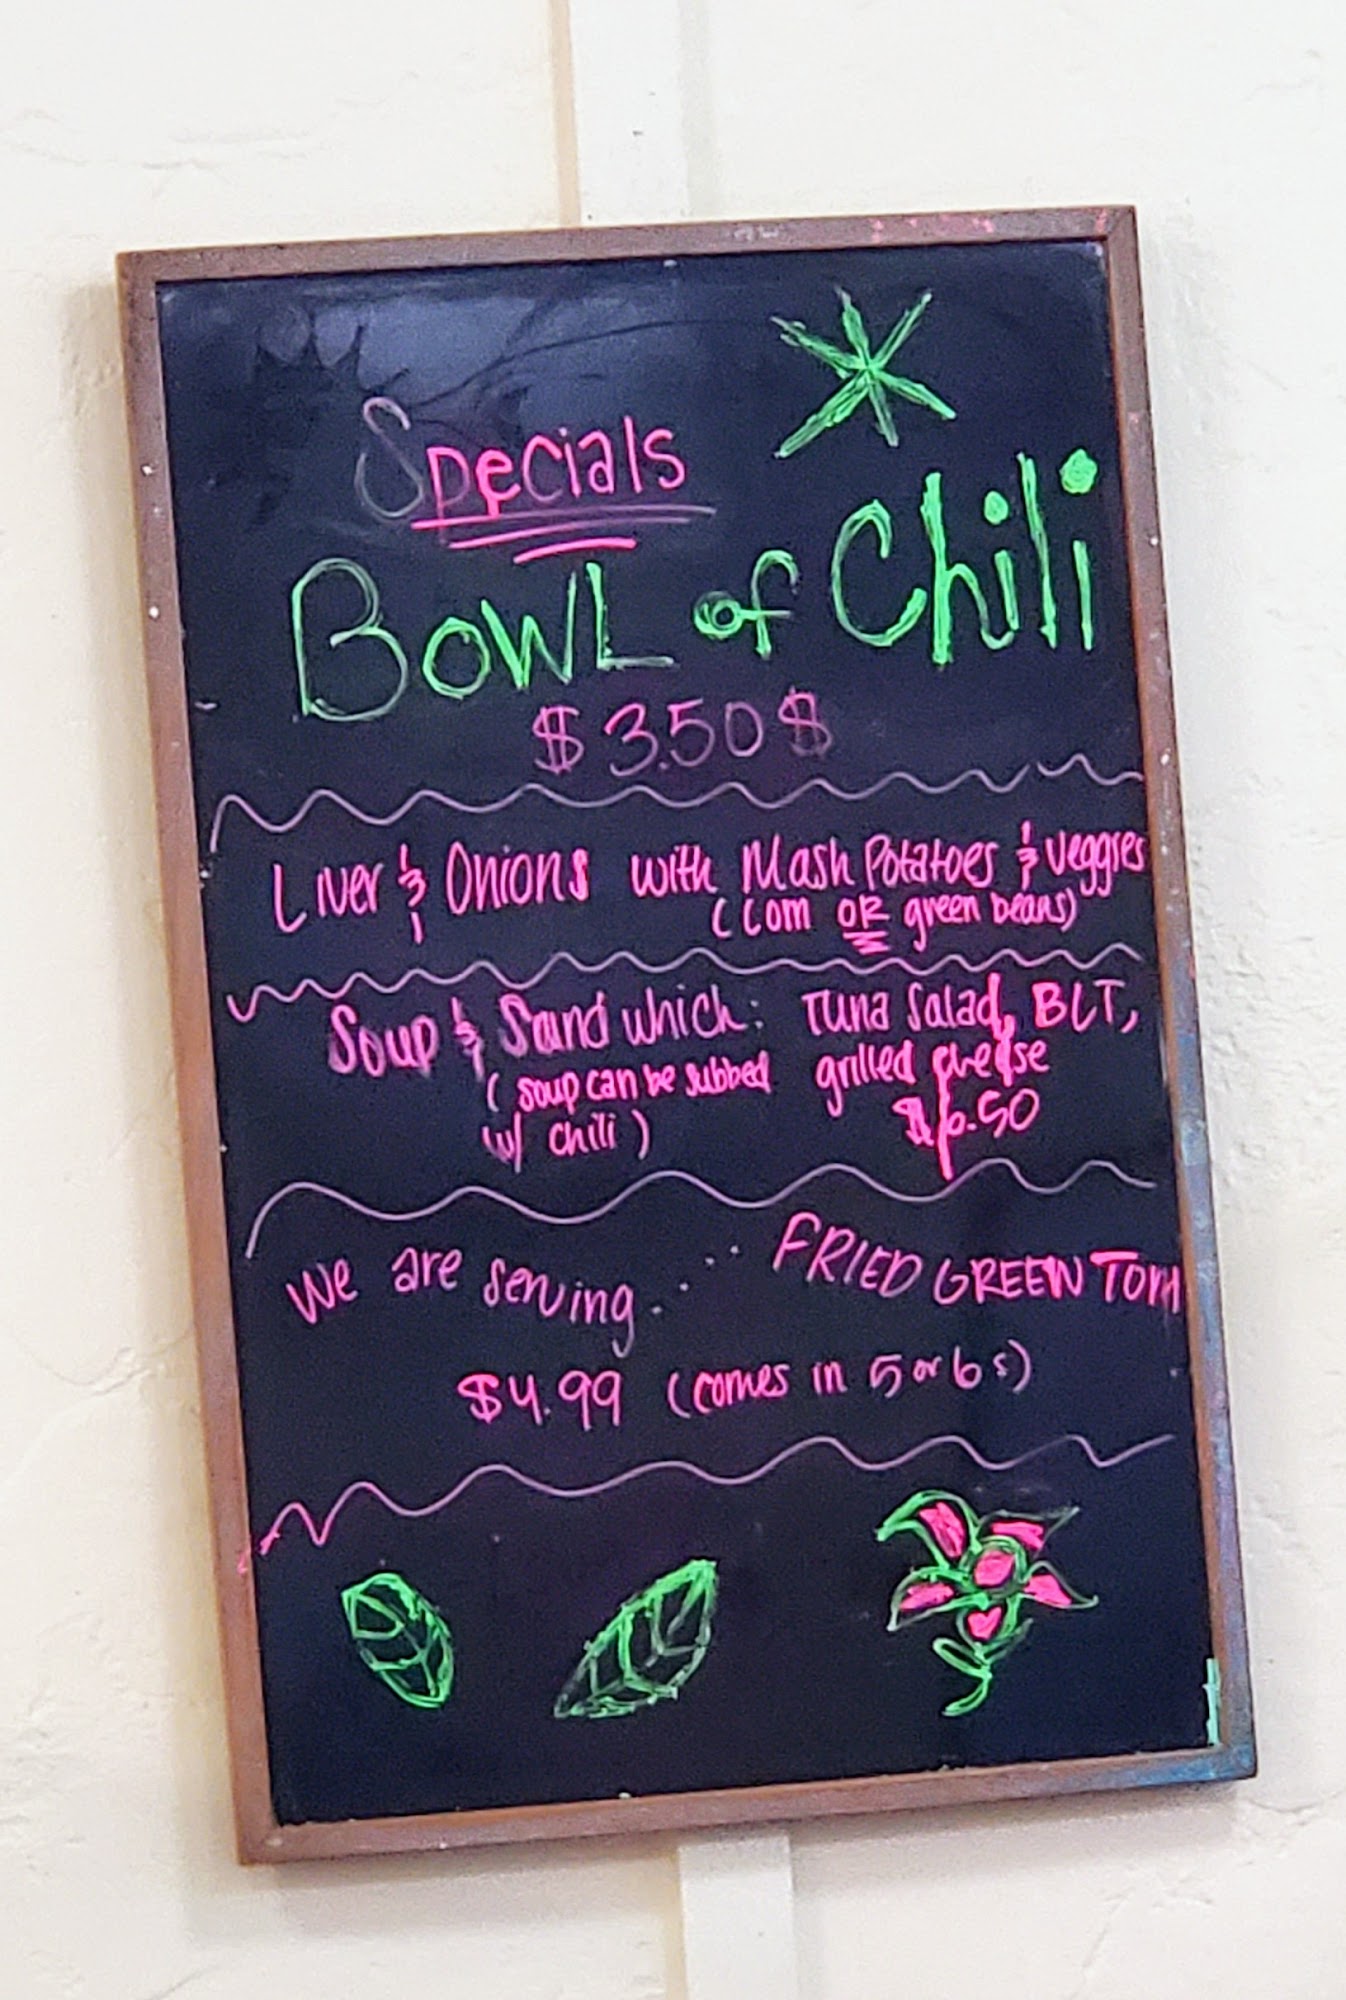 Specials
BOWL of Chili
$3.50$
Liver & Onions with Mash Potatoes & Veggies
(Corn OR green beans)
Soup & Sandwhich: Tuna Salad, BLT,
(soup can be subbed grilled cheese
w/ chili) $6.50
We are serving..... FRIED GREEN TOM
$4.99 (comes in 5 or 6s)